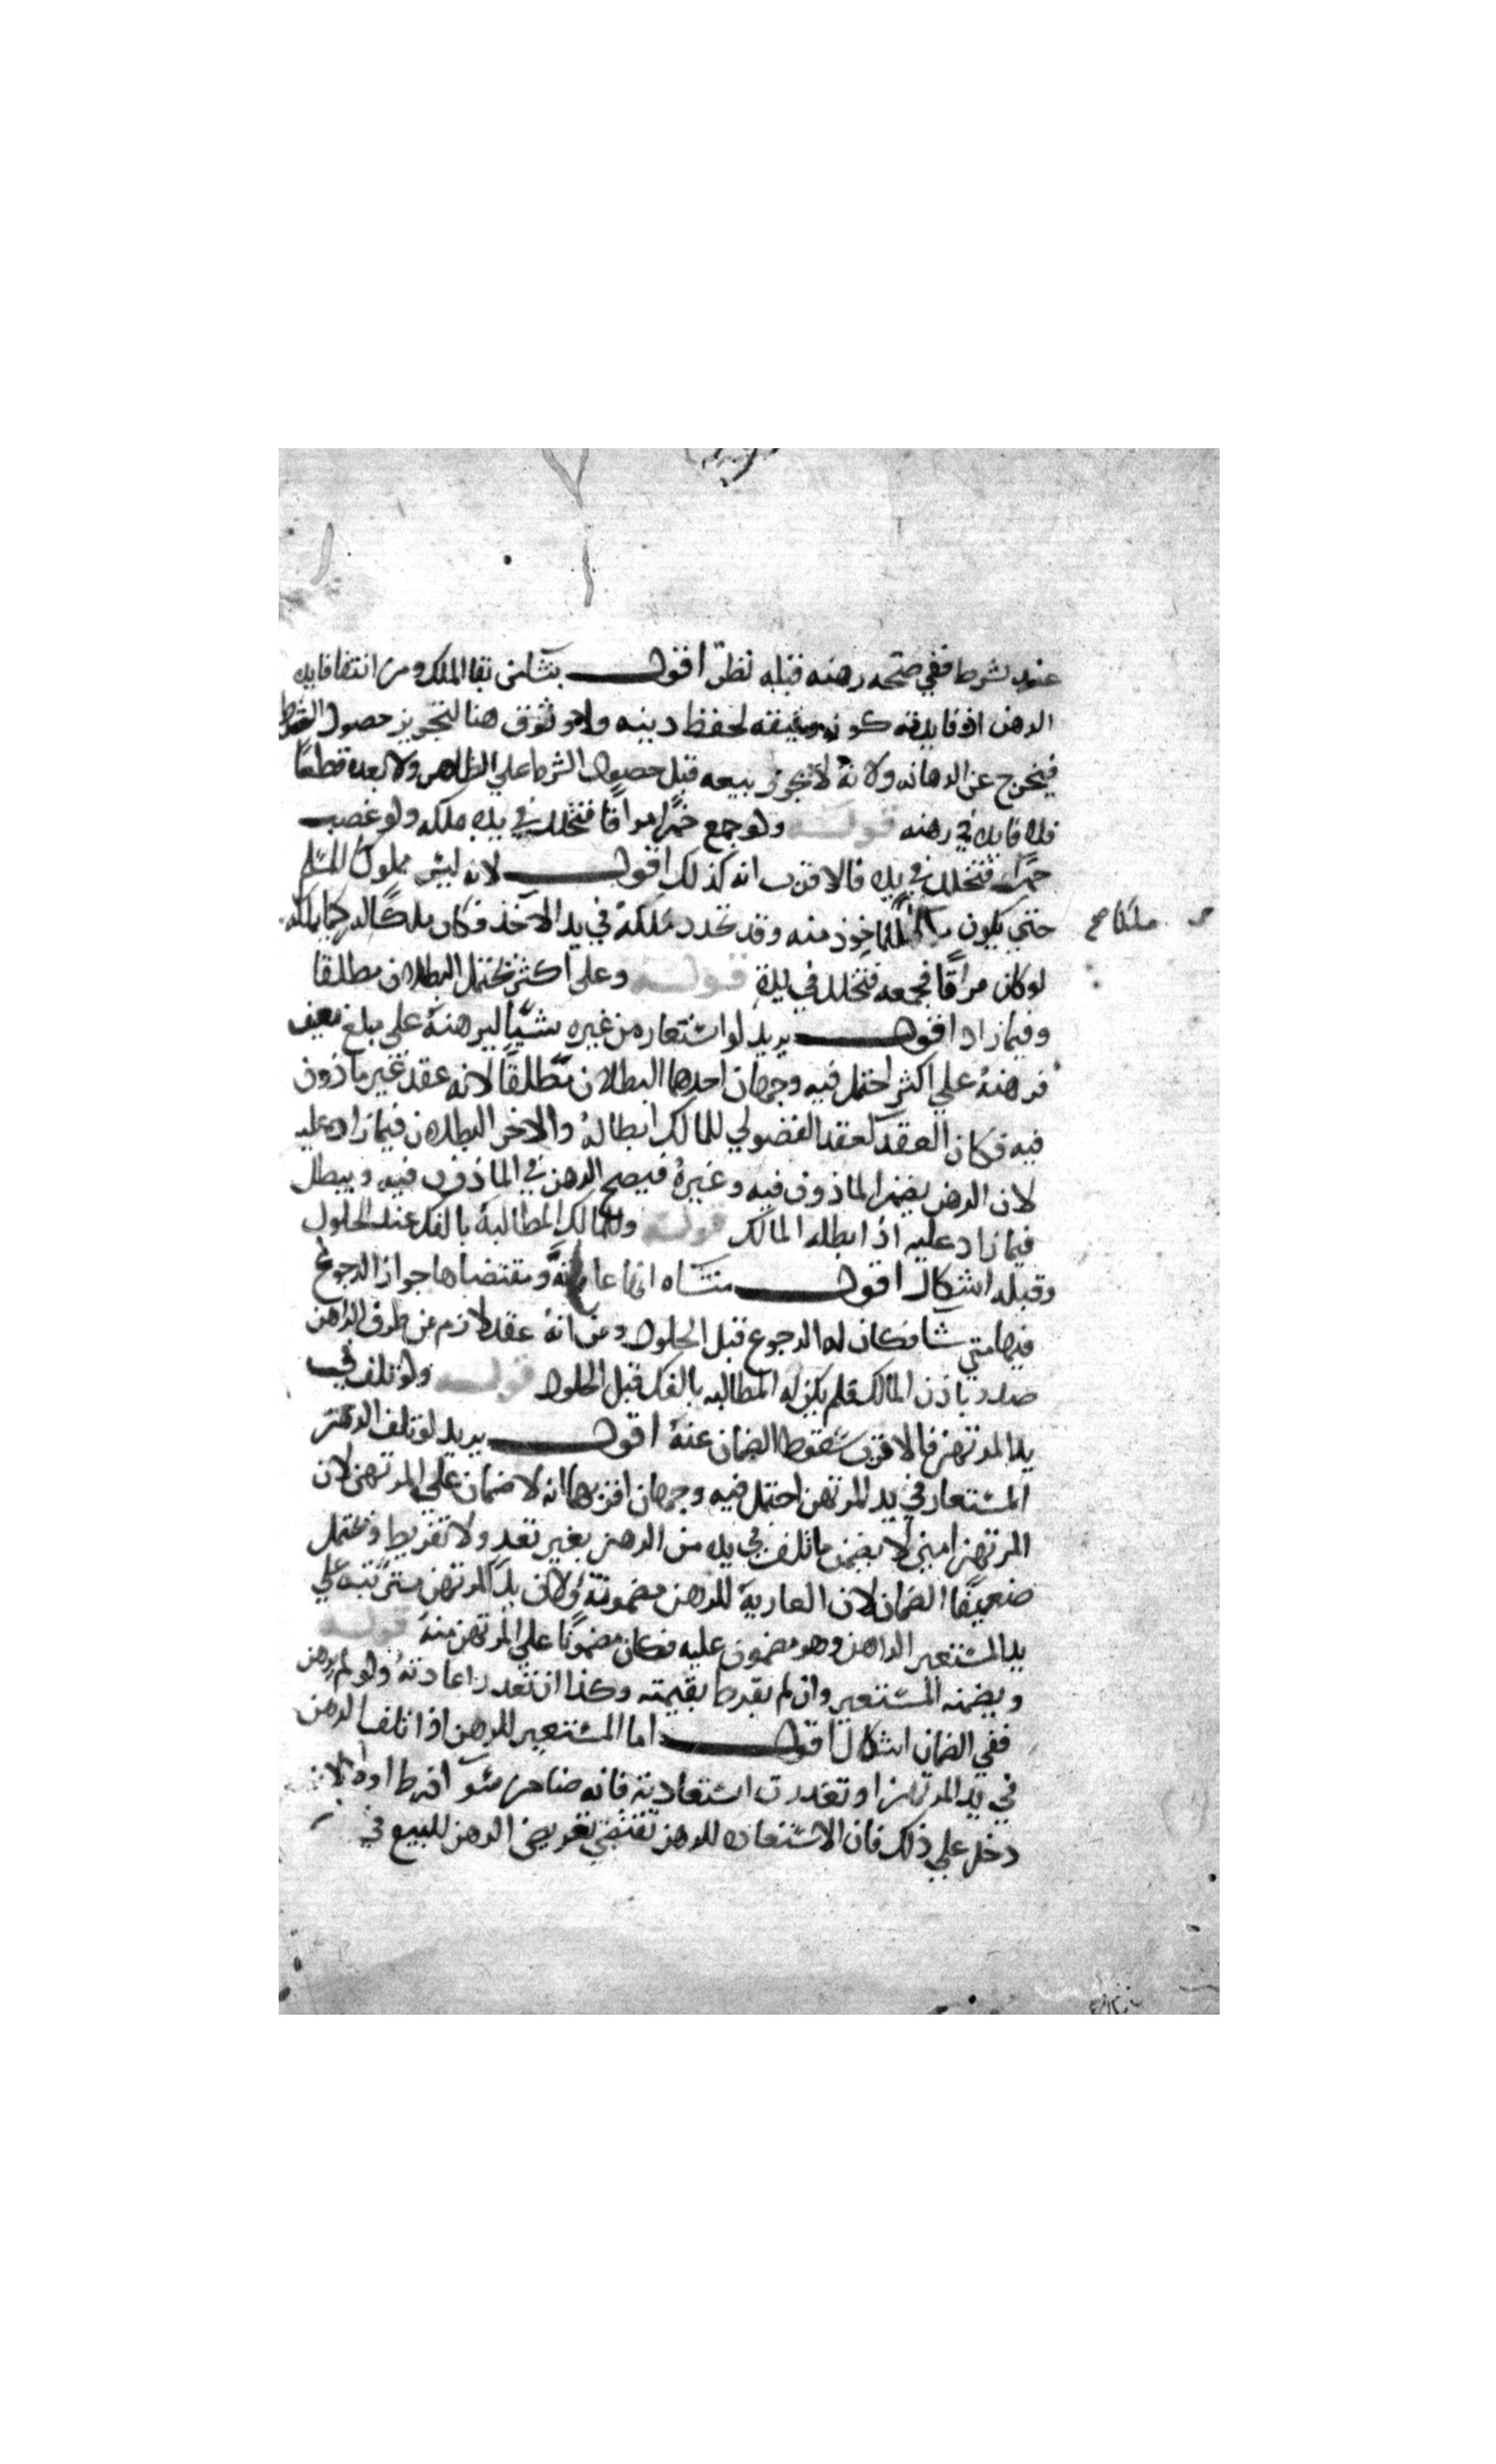 عنده بشرط ففي صحة رهنه قبله نظر اقول ينشأ من بقا الملك ومن انتفا فايده
الرهن اذ فايدته كونه وثيقه لحفظ دينه ولا وثوق هنا لتجويز حصول الشرط
فيخرج عن الرهانه ولانه لا يجوز بيعه قبل حصول الشرط علي الظاهر ولا بعده قطعًا
فلا فايده في رهنه قوله ولو جمع خمرًا مراقًا فتخلل في يده ملكه ولو غصب
خمرًا فتخلل في يده فالاقرب انه كذلك اقول لانه ليس مملوكًا للمسلم
حتي يكون للماخوذ منه وقد تجدد ملكه في يد الاخذ فكان ملكًا له كما يملكه
ملكا صح
لو كان مراقًا فجمعه فتخلل في يده قوله وعلي اكثر يحتمل البطلان مطلقا
وفيما زاد اقول يريد لو استعار من غيره شيًا ليرهنه علي مبلغ معين
فرهنه علي اكثر احتمل فيه وجهان احدهما البطلان مطلقًا لانه عقد غير ماذون
فيه فكان العقد كعقد الفضولي للمالك ابطاله والاخر البطلان فيما زاد عليه
لان الرهن يضم الماذون فيه وغيره فيصح الرهن في الماذون فيه ويبطل
فيما زاد عليه اذا ابطله المالك قوله وللمالك المطالبة بالفك عند الحلول
وقبله اشكال اقول منشاه انها عارية ومقتضاها جواز الرجوع
فيها متي شا فكان له الرجوع قبل الحلول ومن انه عقد لازم من طرف الراهن
صدر باذن المالك فلم يكن له المطالبه بالفك قبل الحلول قوله ولو تلف في
يد المرتهن فالاقرب سقوط الضمان عنه اقول يريد لو تلف الرهن
المستعار في يد المرتهن احتمل فيه وجهان اقربهما انه لا ضمان علي المرتهن لان
المرتهن امين لا يضمن ما تلف في يده من الرهن بغير تعد ولا تفريط ويحتمل
ضعيفًا الضمان لان العارية للرهن مضمونة ولان يد المرتهن مترتبه علي
يد المستعير الراهن وهو مضمون عليه فكان مضمونًا علي المرتهن منه قوله
ويضمنه المستعير وان لم يفرط بقيمته وكذا ان تعذر اعادته ولو لم يرهن
ففي الضمان اشكال اقول اما المستعير للرهن اذا تلف الرهن
في يد المرتهن او تعذرت استعادته فانه ضامن سوا فرط اولا لانه
دخل علي ذلك فان الاستعاده للرهن تقتضي تعريض الرهن للبيع في